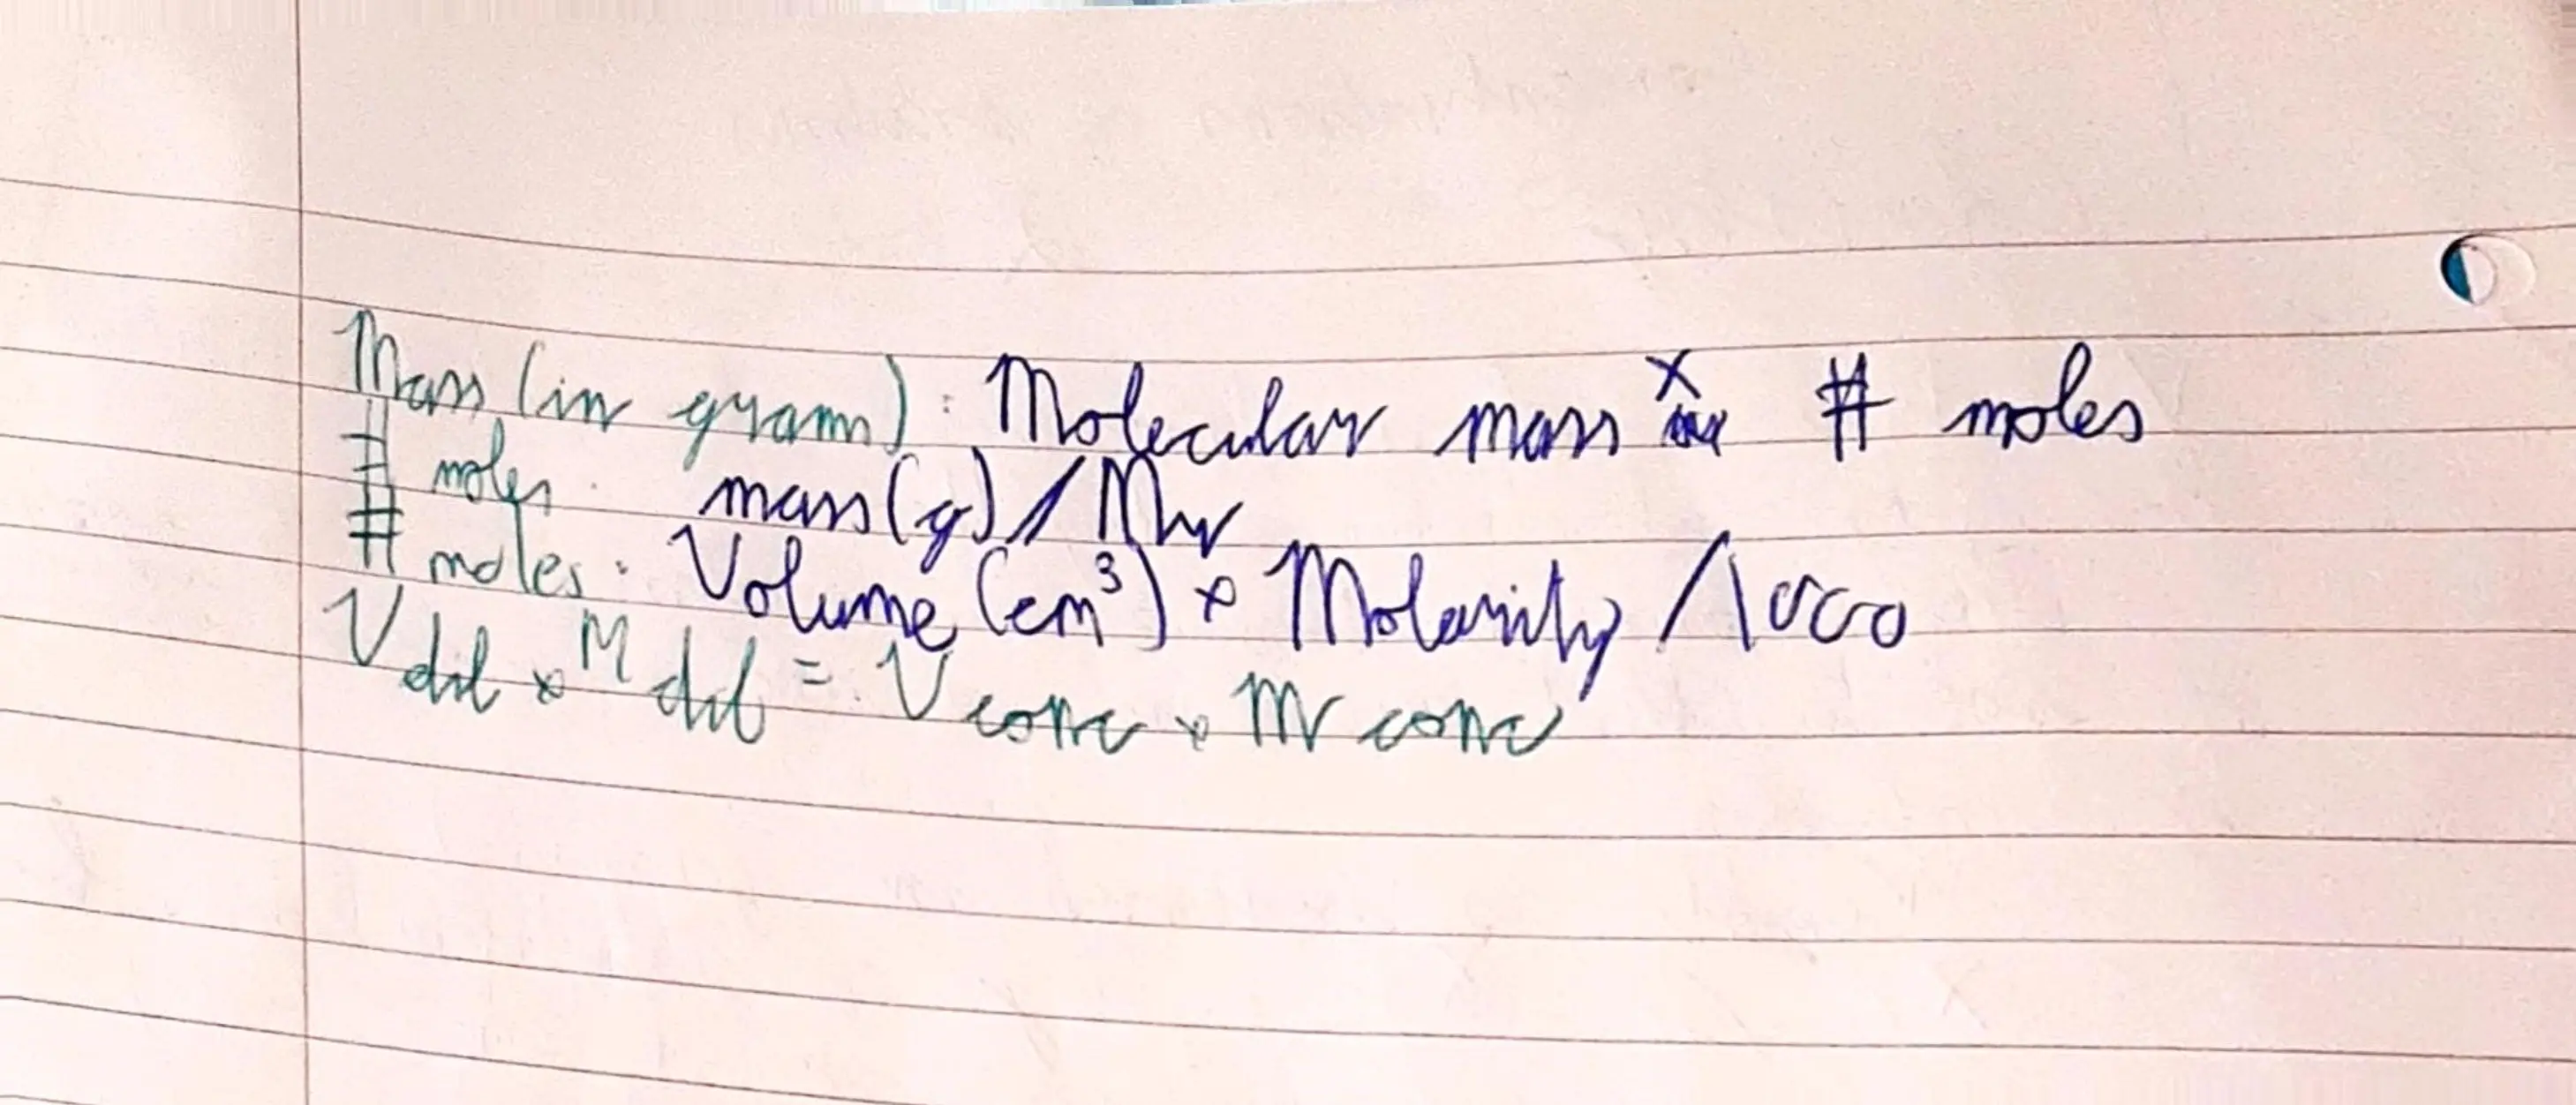 Mass (in gram) : Molecular mass x # moles
# moles : mass(g) / Mr
# moles : Volume (cm³) x Molarity / 1000
V dil x M dil = V conc x M conc